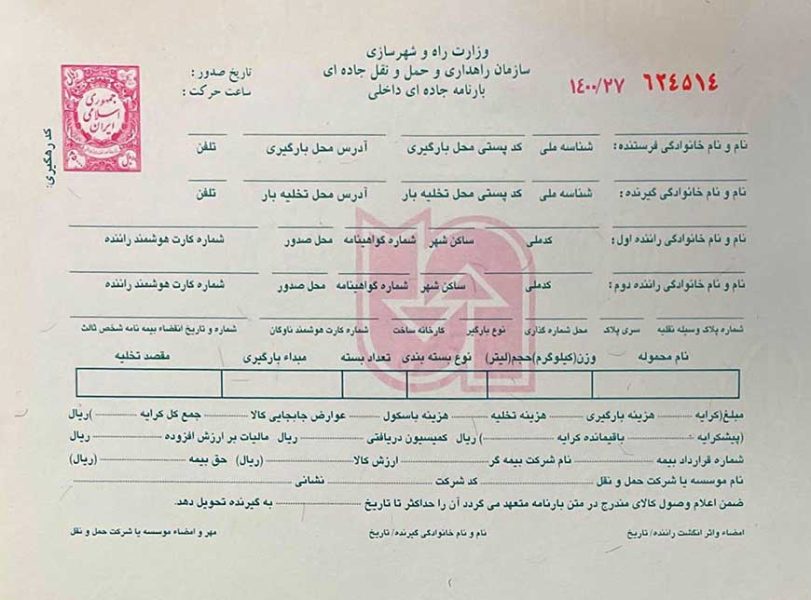 وزارت راه و شهرسازی
سازمان راهداری و حمل و نقل جاده ای
بارنامه جاده ای داخلی
۱۴۰۰/۲۷ ۶۲۴۵۱۴
تاریخ صدور :
ساعت حرکت :
ریال
جمهوری
اسلامی
ایران
کد رهگیری:
نام و نام خانوادگی فرستنده: شناسه ملی کد پستی محل بارگیری آدرس محل بارگیری تلفن
نام و نام خانوادگی گیرنده: شناسه ملی کد پستی محل تخلیه بار آدرس محل تخلیه بار تلفن
نام و نام خانوادگی راننده اول: کدملی ساکن شهر شماره گواهینامه محل صدور شماره کارت هوشمند راننده
نام و نام خانوادگی راننده دوم: کدملی ساکن شهر شماره گواهینامه محل صدور شماره کارت هوشمند راننده
شماره پلاک وسیله نقلیه سری پلاک محل شماره گذاری نوع بارگیر کارخانه ساخت شماره کارت هوشمند ناوگان شماره و تاریخ انقضاء بیمه نامه شخص ثالث
نام محموله وزن(کیلوگرم)حجم(لیتر) نوع بسته بندی تعداد بسته مبداء بارگیری مقصد تخلیه
مبلغ(کرایه هزینه بارگیری هزینه تخلیه هزینه باسکول عوارض جابجایی کالا جمع کل کرایه )ریال
(پیشکرایه باقیمانده کرایه ) ریال کمیسیون دریافتی ریال مالیات بر ارزش افزوده ریال
شماره قرارداد بیمه نام شرکت بیمه گر ارزش کالا (ریال) حق بیمه (ریال)
نام موسسه یا شرکت حمل و نقل کد شرکت نشانی
ضمن اعلام وصول کالای مندرج در متن بارنامه متعهد می گردد آن را حداکثر تا تاریخ به گیرنده تحویل دهد.
امضاء واثر انگشت راننده/ تاریخ نام و نام خانوادگی گیرنده/ تاریخ مهر و امضاء موسسه یا شرکت حمل و نقل